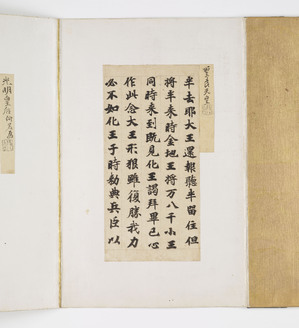 半去耶大王還報聽半留住但
将半来時金地王将万八千小王
同時来到既見化王謁拜畢已心
作此念大王形狠雖復勝我力
必不如化王于時勅典兵臣以